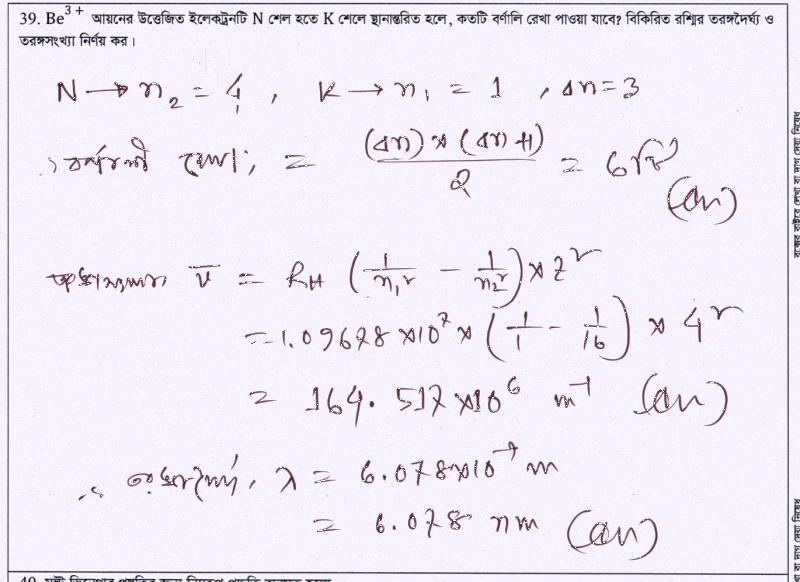 39. Be³⁺ আয়নের উত্তেজিত ইলেকট্রনটি N শেল হতে K শেলে স্থানান্তরিত হলে, কতটি বর্ণালি রেখা পাওয়া যাবে? বিকিরিত রশ্মির তরঙ্গদৈর্ঘ্য ও
তরঙ্গসংখ্যা নির্ণয় কর।
N → n₂ = 4, K → n₁ = 1, Δn = 3
∴ বর্ণালী রেখা, = (Δn) × (Δn+1) / 2 = 6টি
(An)
তরঙ্গসংখ্যা, ν̅ = R_H (1/n₁² − 1/n₂²) × z²
= 1.09678 × 10⁷ × (1/1 − 1/16) × 4²
= 164.517 × 10⁶ m⁻¹ (An)
∴ তরঙ্গদৈর্ঘ্য, λ = 6.078 × 10⁻⁹ m
= 6.078 nm (An)